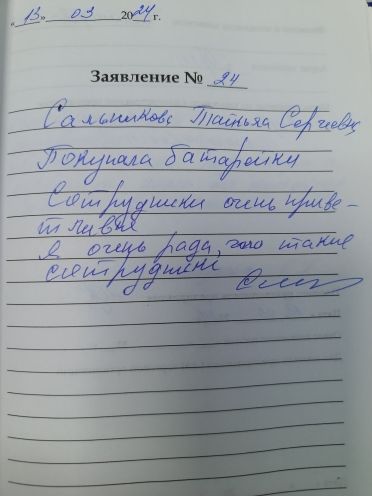 „ 13 " 03 2024 г.
Заявление № 24
Сальникова Татьяна Сергеевна
Покупала батарейки
Сотрудники очень приве-
тливые
Я очень рада, что такие
сотрудники